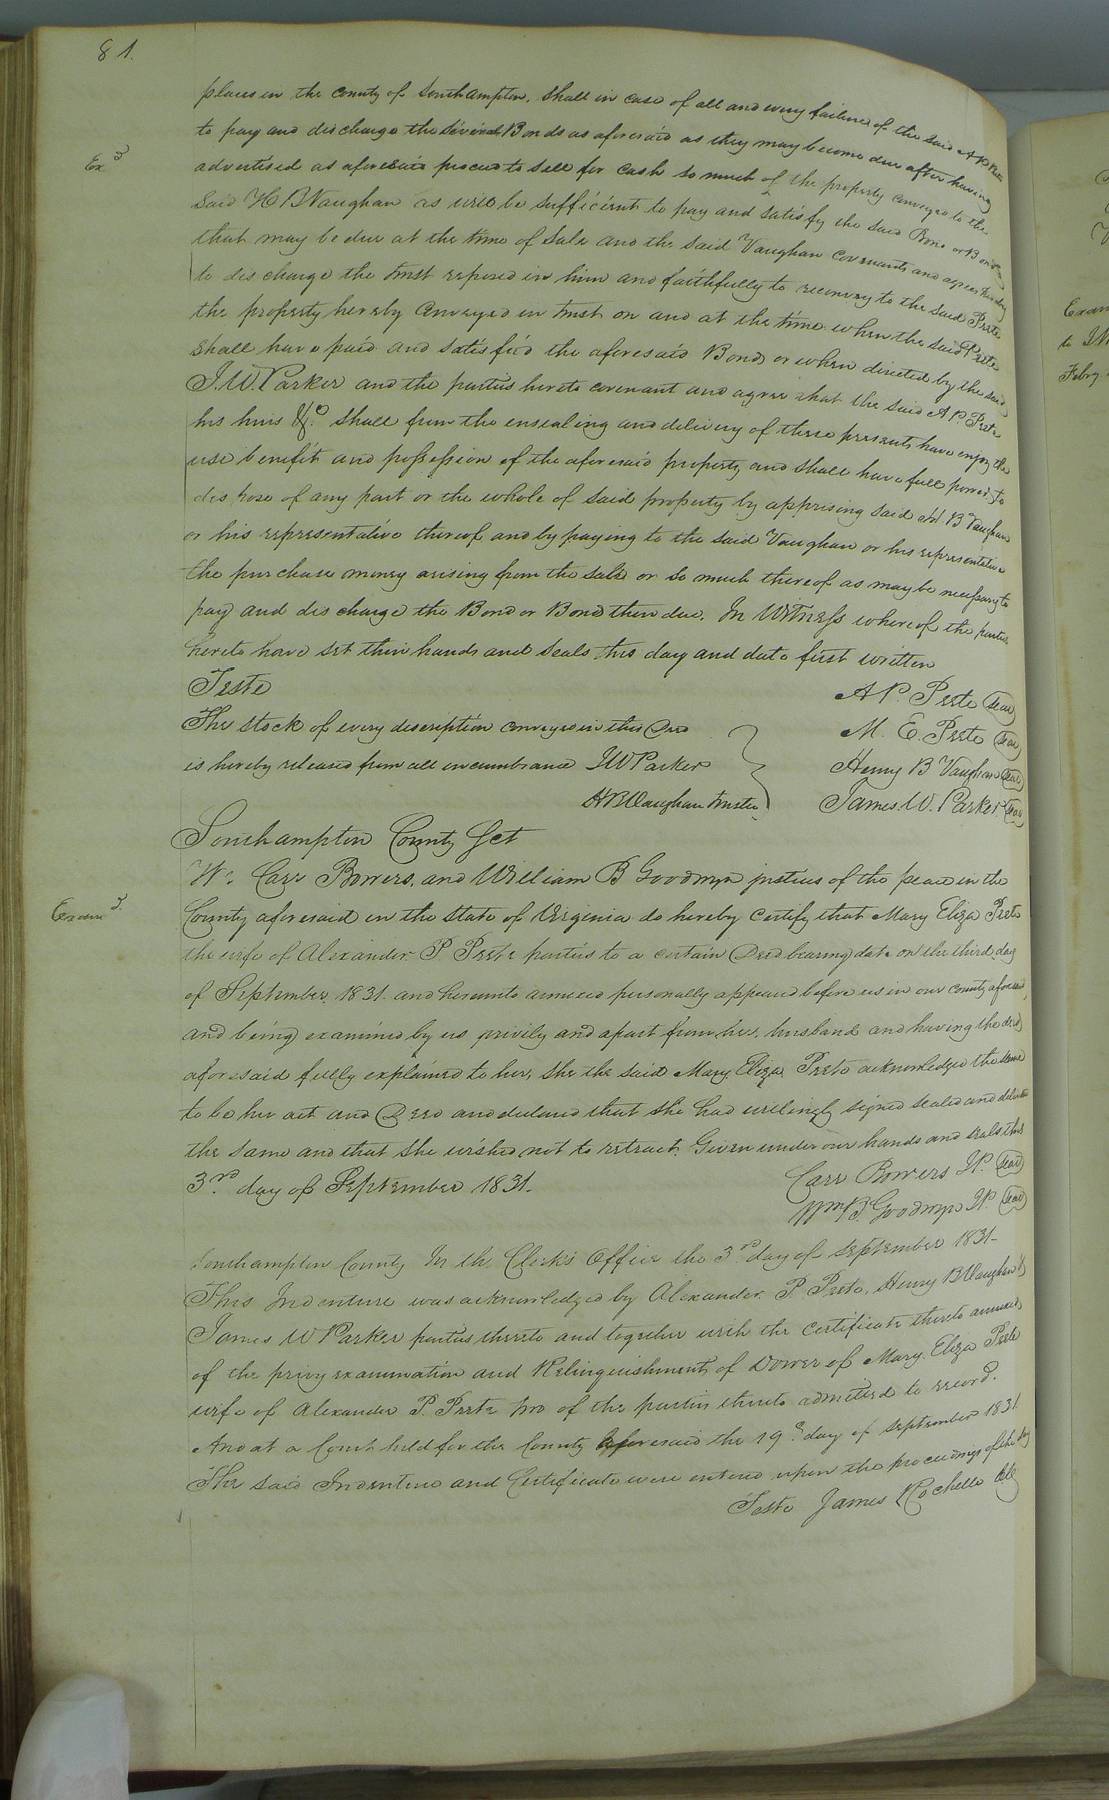 81.
places in the county of Southampton. Shall in case of all and every failure of the said A P Peete
to pay and discharge the Several Bonds as aforesaid as they may become due after having
Ex d
advertised as aforesaid proceed to sell for cash so much of the property conveyed to the
said H B Vaughan as will be sufficient to pay and satisfy the said Bond or Bonds
that may be due at the time of sale and the said Vaughan covenants and agrees
to discharge the trust reposed in him and faithfully to reconvey to the said Peete
the property hereby conveyed in trust on and at the time when the said Peete
shall have paid and satisfied the aforesaid Bonds or when directed by the said
J. W. Parker and the parties hereto covenant and agree that the said A. P. Peete
his heirs &c. shall from the ensealing and delivery of these presents have enjoy the
use benefit and possession of the aforesaid property and shall have full power to
dispose of any part or the whole of said property by apprising said H B Vaughan
or his representative thereof and by paying to the said Vaughan or his representative
the purchase money arising from the sale or so much thereof as may be necessary to
pay and discharge the Bond or Bonds then due. In Witness whereof the parties
hereto have set their hands and seals this day and date first written
Teste
A P. Peete Seal
The stock of every description conveyed in this Deed
M. E. Peete Seal
is hereby released from all incumbrance J W Parker
Henry B Vaughan Seal
H B Vaughan trustee
James. W. Parker Seal
Southampton County Sct
We Carr Bowers, and William B Goodwyn justices of the peace in the
Examd.
County aforesaid in the State of Virginia do hereby certify that Mary Eliza Peete
the wife of Alexander P Peete parties to a certain Deed bearing date on the third day
of September 1831. and hereunto annexed personally appeared before us in our county aforesaid
and being examined by us privily and apart from her husband and having the deed
aforesaid fully explained to her, she the said Mary Eliza Peete acknowledged the same
to be her act and Deed and declared that she had willingly signed sealed and delivered
the same and that she wished not to retract. Given under our hands and seals this
3rd day of September 1831.
Carr Bowers J.P. Seal
Wm B. Goodwyn J.P. Seal
Southampton County In the Clerks Office the 3rd day of September 1831-
This Indenture was acknowledged by Alexander. P. Peete, Henry B Vaughan &
James W Parker parties thereto and together with the certificate thereto annexed
of the privy examination and Relinquishment of Dower of Mary. Eliza Peete
wife of Alexander P. Peete two of the parties thereto admitted to record.
And at a Court held for the County aforesaid the 19th day of September 1831
The said Indenture and Certificate were entered upon the proceedings of the day
Teste James Rochelle Clk